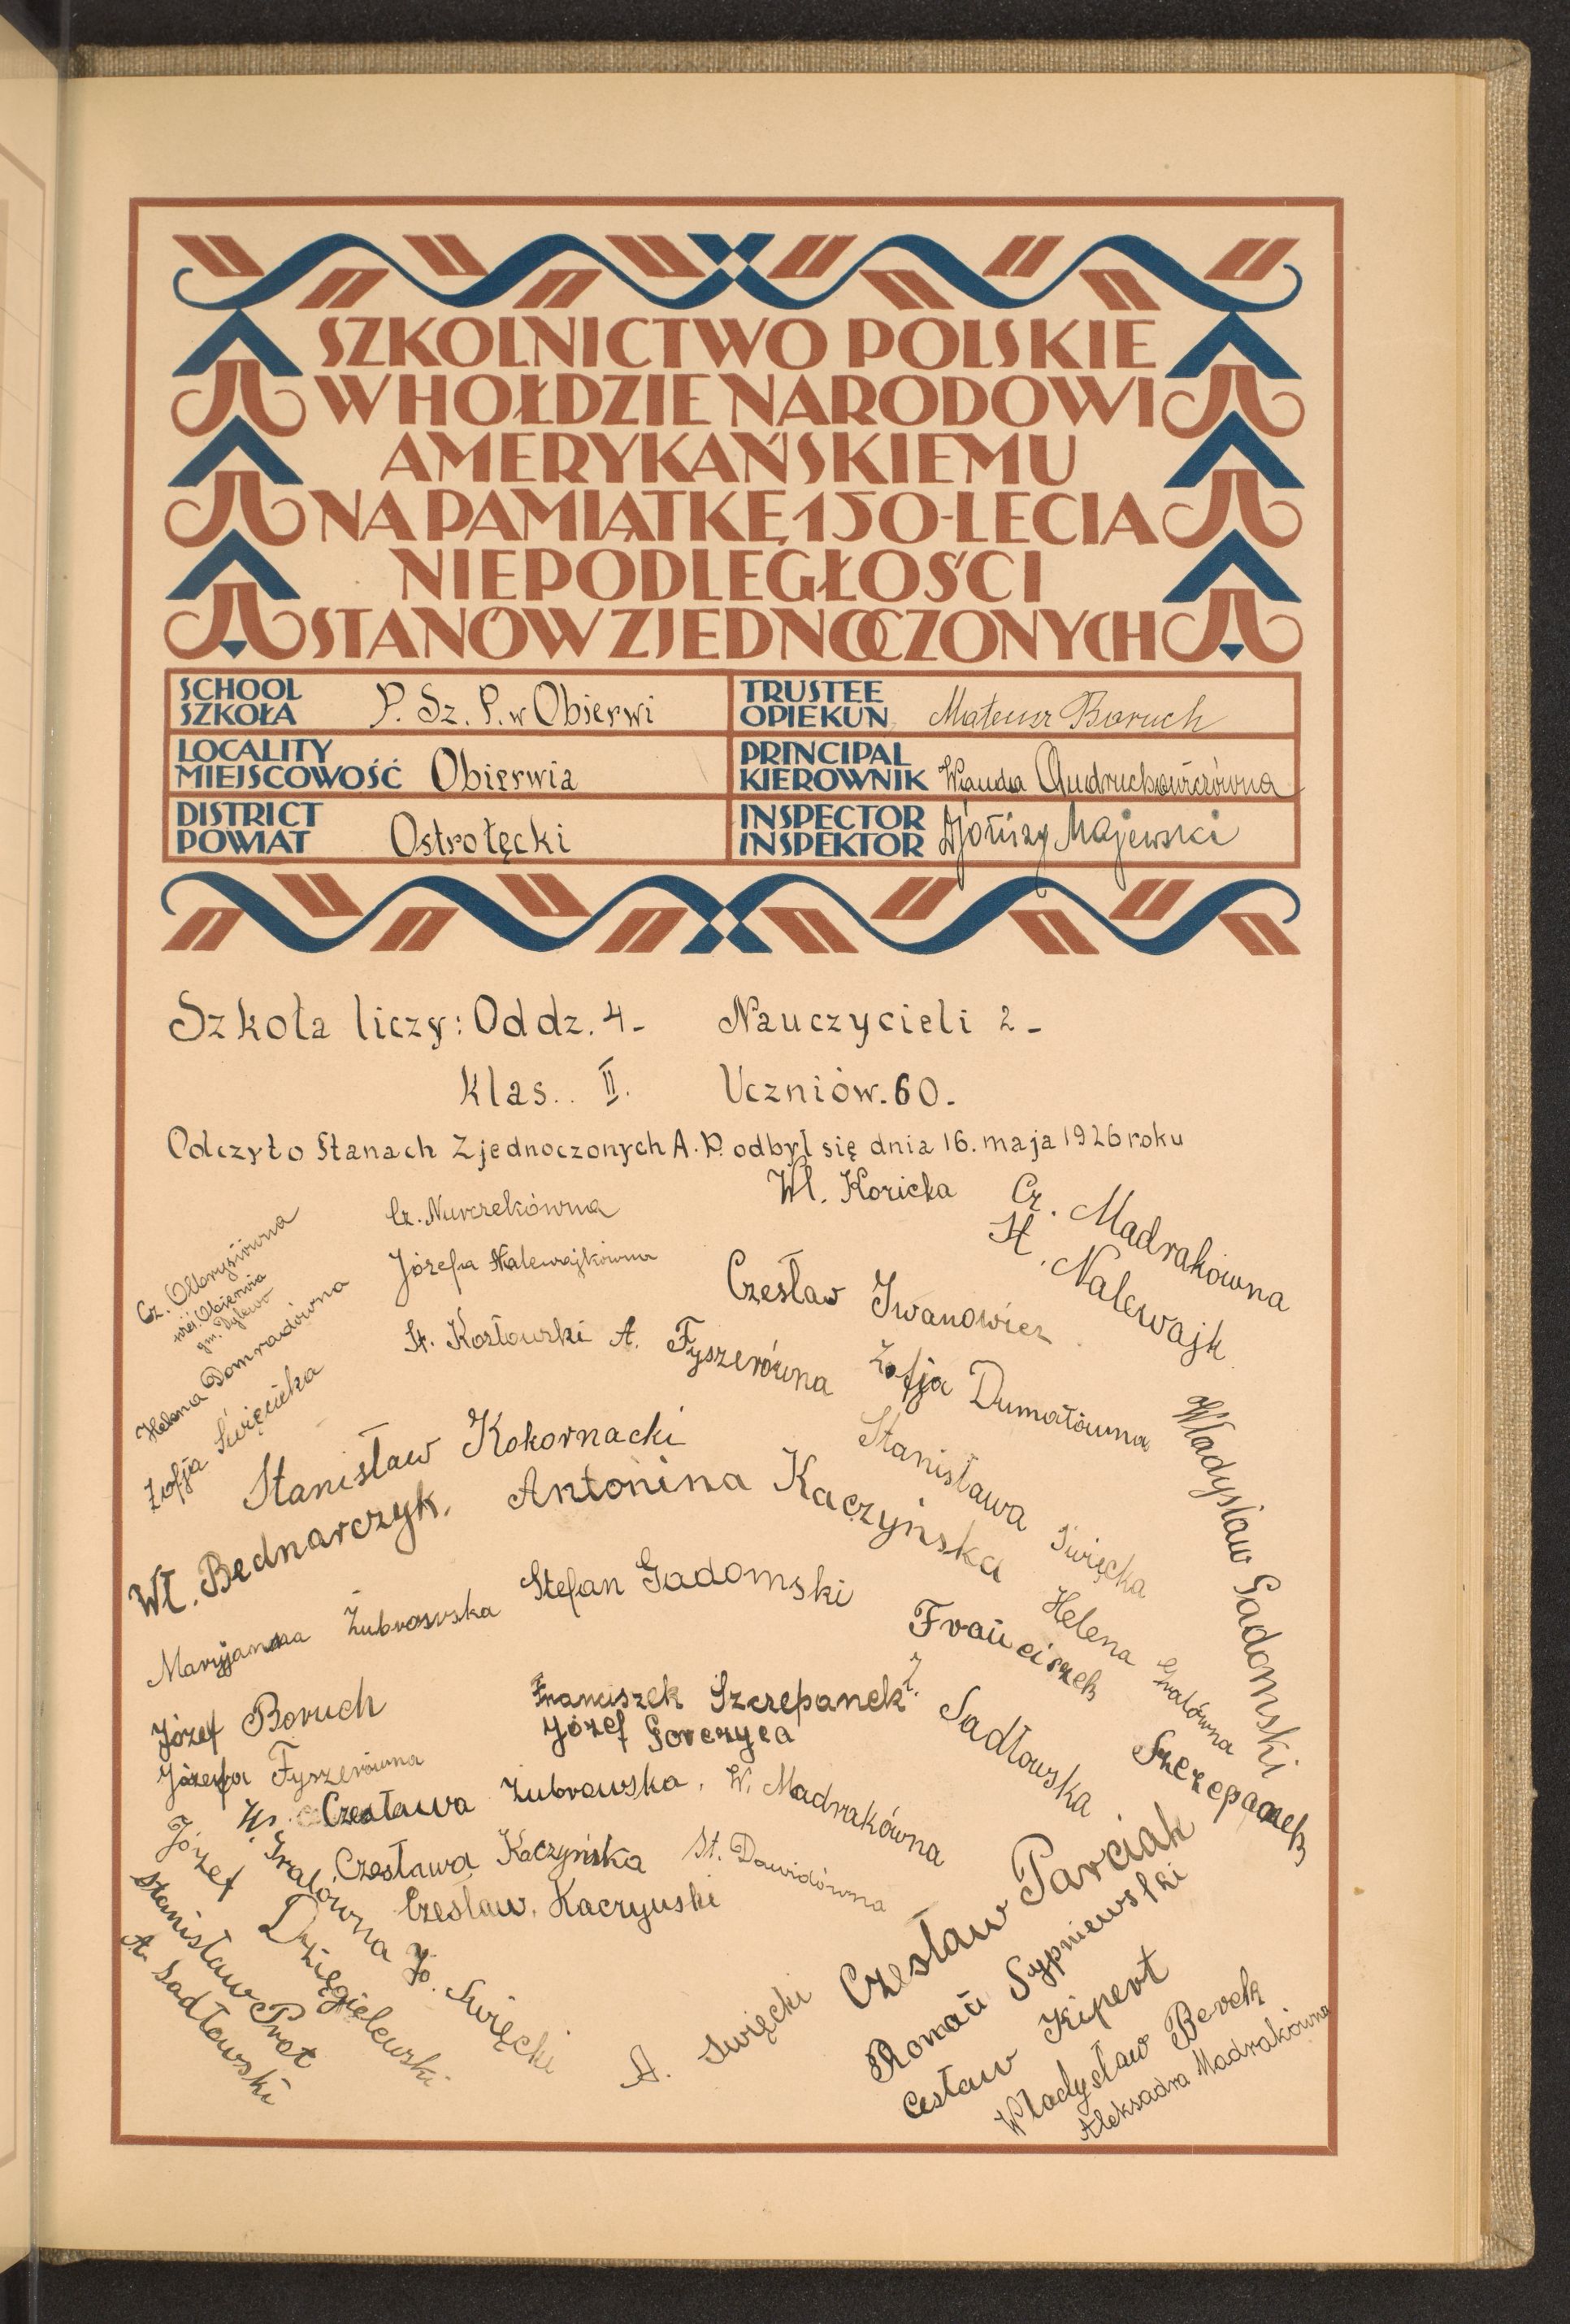 SZKOLNICTWO POLSKIE
W HOŁDZIE NARODOWI
AMERYKAŃSKIEMU
NA PAMIĄTKĘ 150-LECIA
NIEPODLEGŁOŚCI
STANÓW ZJEDNOCZONYCH
SCHOOL
SZKOŁA
P. Sz. P. w Obierwi
TRUSTEE
OPIEKUN
Mateusz Boruch
LOCALITY
MIEJSCOWOŚĆ
Obierwia
PRINCIPAL
KIEROWNIK
Wanda
DISTRICT
POWIAT
Ostrołęcki
INSPECTOR
INSPEKTOR
Majewski
Szkoła liczy: Oddz. 4- Nauczycieli 2-
Klas.. II. Uczniów. 60.
Odczyt o Stanach Zjednoczonych A. P. odbył się dnia 16. maja 1926 roku
Wł. Koricka
Cz. Madrakówna
St. Nalewajk
Cz. Nurczekówna
Józefa Nalewajkówna
Cz. Olbrysiówna
miej. Obierwia
gm. Dylewo
Helena Domradówna
Zofja Święcicka
Czesław Iwanowicz
St. Kozłowski
A. Fyszerówna
Zofja Dumałówna
Władysław Gadomski
Stanisław Kokornacki
Stanisława Święcka
Wł. Bednarczyk.
Antonina Kaczyńska
Marjanna Żubrowska
Stefan Gadomski
Helena Gralówna
Franciszek Szczepanek
Józef Boruch
Franciszek Szczepanek
Z. Sadłowska
Józef Gorczyca
Józefa Fyszerówna
Czesława Żubrowska.
W. Madrakówna
W. Gralówna
Czesława Kaczyńska
St. Dawidówna
Czesław. Kaczyuski
Józef Dzięgielewski
Stanisław Prot
A. Sadłowski
Jó. Święcki
A. Święcki
Czesław Parciak
Roman Sypniewski
Cesław Kipert
Władysław Berek
Aleksadra Madrakówna